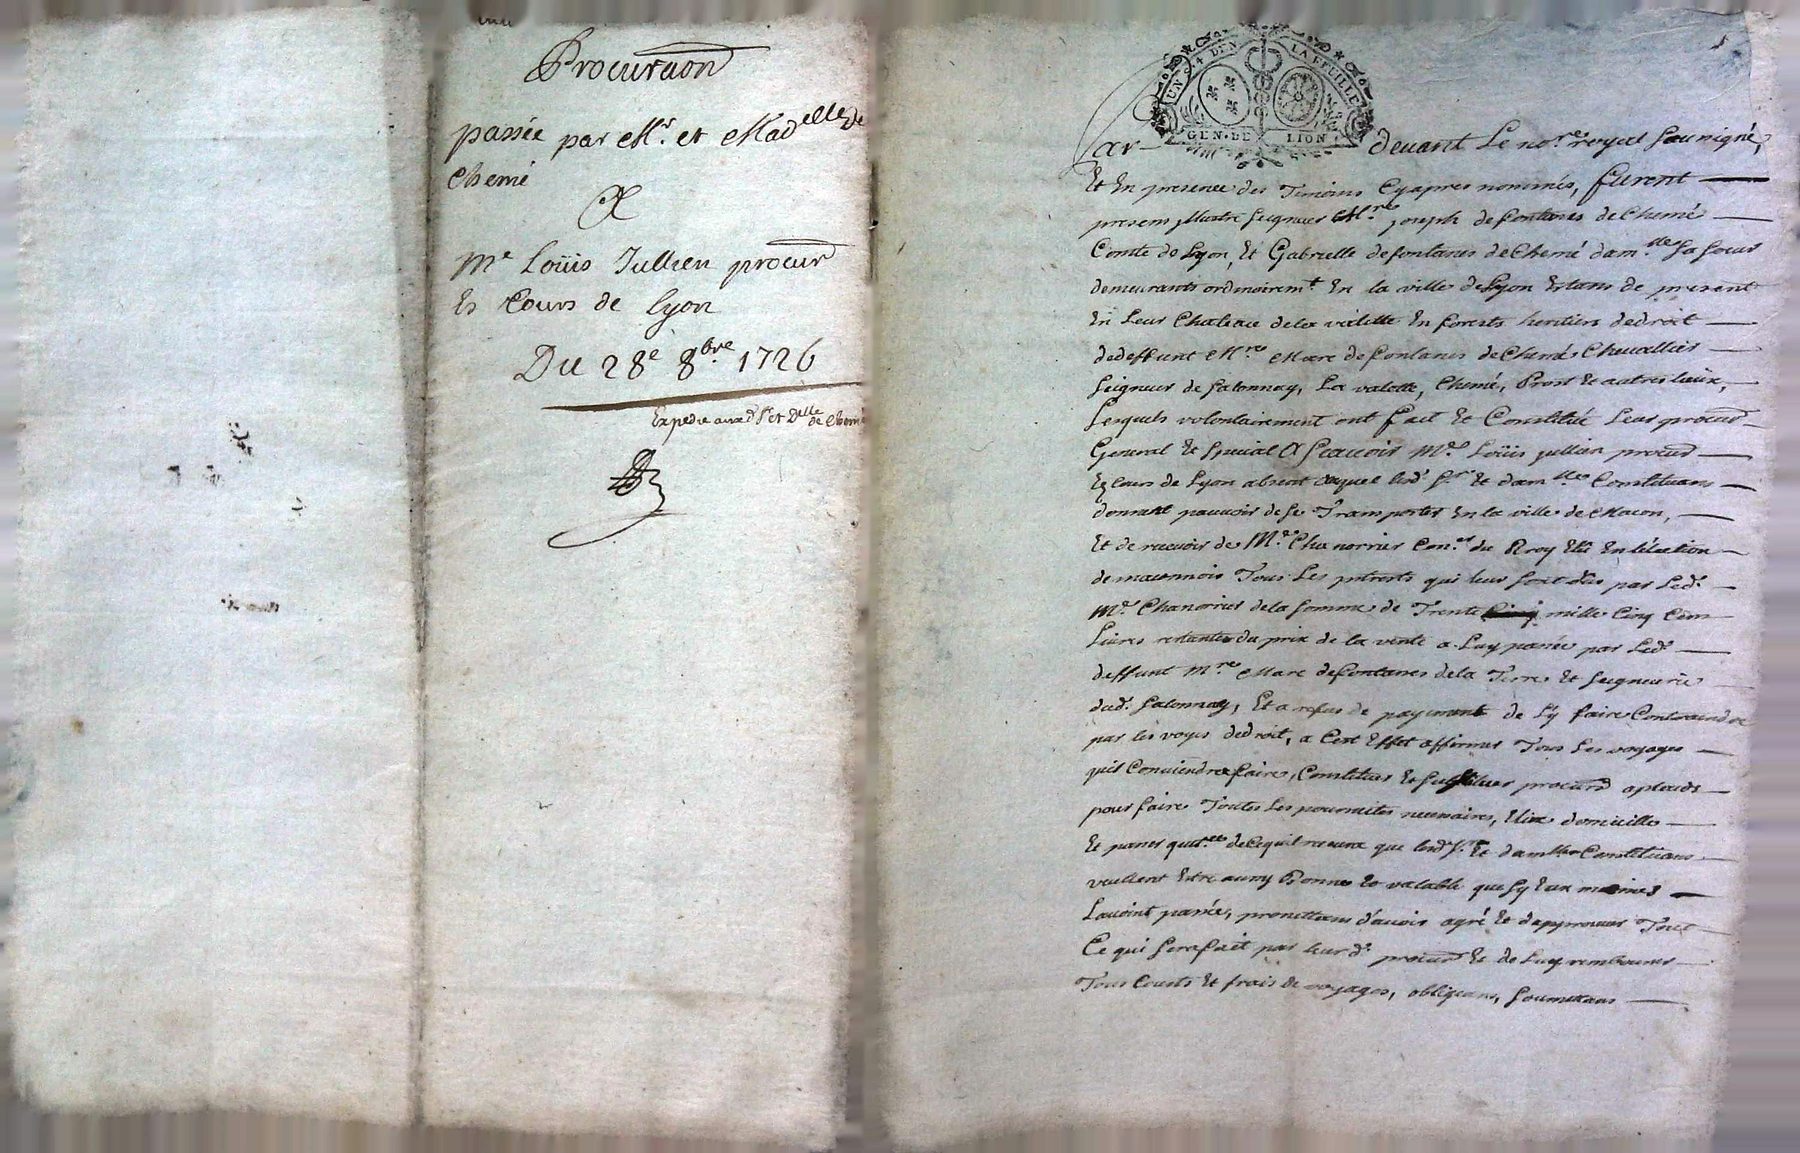 Procura͠on
passée par Mr. et Madelle de
Chemé
A
Me Loüis Jullien procur
Es Cours de Lyon
Du 28e 8bre. 1726
Expedié aux d. Sr et Dlle de Chemé
UN S 4 DEN LA FEUILLE
GEN. DE LION
Par devant Le nore. royal Sousigné,
Et En presence des Temoins Cyapres nommés, furent
presens Illustre Seigneur Mre. Joseph de fontanes de Chemé
Comte de Lyon, Et Gabrielle de fontanes de Chemé damlle Sa Soeur
demeurants ordinairemt. En la ville de Lyon Estans de present
En Leur Chateau de la valette En forests heritiers de droit
de deffunt Mre Marc de fontanes de Chemé Chevallier
Seigneur de Satonnay, La valette, Chemé, Prost Et autres lieux,
Lesquels volontairement ont fait Et Constitué Leur procur
General Et special A Scavoir Me. Loüis jullien procur
Es Cours de Lyon absent auquel lesd. Sr. Et damlle Constituans
donnent pouvoir de se Transporter En la ville de Macon,
Et de recevoir de Me. Chanorrier Coner. du Roy Elû En l'élection
de maconnois Tous Les interests qui leur sont dûs par Led.
Me. Chanorrier de la somme de Trente mille Cinq Cens
Livres restantes du prix de la vente a Luy passée par Led.
deffunt Mre Marc de fontanes de la Terre Et Seigneurie
dud. Satonnay, Et a refus de payement de L'y faire Contraindre
par les voyes de droit, a Cest Effet affirmer Tous Les voyages
quil Conviendra faire, Constituer Et substituer procur a plaids
pour faire Toutes Les poursuites necessaires, Elire domicille
Et passer quitce. de Ce quil recevra que lesd. Sr. Et damlle Constituans
veullent Estre aussy Bonne Et valable que sy Eux mêmes
L'avoint passée, promettans d'avoir agré Et d'approuver Tout
Ce qui sera fait par leurd. procur Et de Luy rembourser
Tous Cousts Et frais de voyages, obligeans, Soumettans